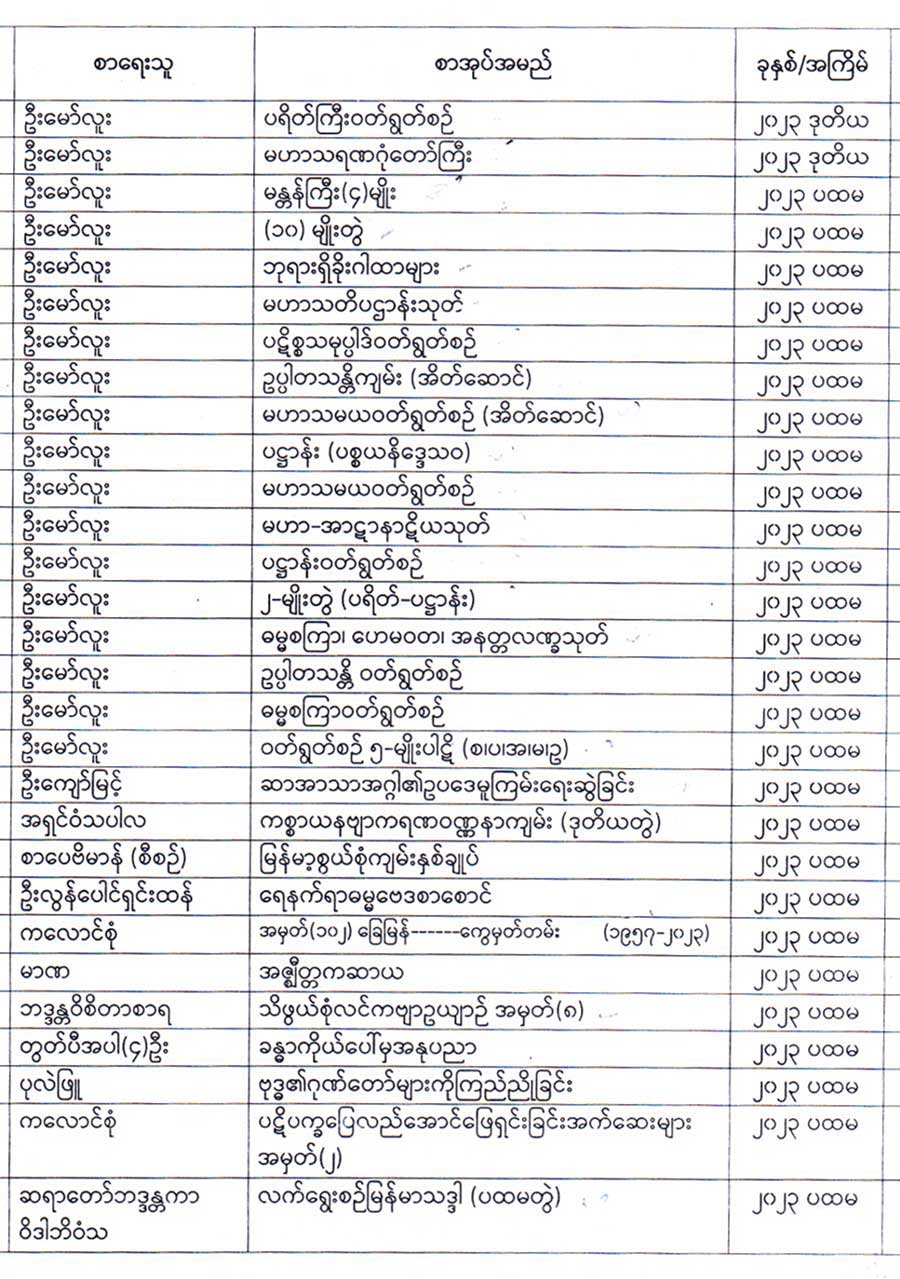 စာရေးသူ စာအုပ်အမည် ခုနှစ်/အကြိမ်
ဦးမော်လူး ပရိတ်ကြီးဝတ်ရွတ်စဉ် ၂၀၂၃ ဒုတိယ
ဦးမော်လူး မဟာသရဏဂုံတော်ကြီး ၂၀၂၃ ဒုတိယ
ဦးမော်လူး မန္တန်ကြီး(၄)မျိုး ၂၀၂၃ ပထမ
ဦးမော်လူး (၁၀) မျိုးတွဲ ၂၀၂၃ ပထမ
ဦးမော်လူး ဘုရားရှိခိုးဂါထာများ ၂၀၂၃ ပထမ
ဦးမော်လူး မဟာသတိပဌာန်းသုတ် ၂၀၂၃ ပထမ
ဦးမော်လူး ပဋိစ္စသမုပ္ပါဒ်ဝတ်ရွတ်စဉ် ၂၀၂၃ ပထမ
ဦးမော်လူး ဥပ္ပါတသန္တိကျမ်း (အိတ်ဆောင်) ၂၀၂၃ ပထမ
ဦးမော်လူး မဟာသမယဝတ်ရွတ်စဉ် (အိတ်ဆောင်) ၂၀၂၃ ပထမ
ဦးမော်လူး ပဋ္ဌာန်း (ပစ္စယနိဒ္ဒေသဝ) ၂၀၂၃ ပထမ
ဦးမော်လူး မဟာသမယဝတ်ရွတ်စဉ် ၂၀၂၃ ပထမ
ဦးမော်လူး မဟာ-အာဋာနာဋိယသုတ် ၂၀၂၃ ပထမ
ဦးမော်လူး ပဋ္ဌာန်းဝတ်ရွတ်စဉ် ၂၀၂၃ ပထမ
ဦးမော်လူး ၂-မျိုးတွဲ (ပရိတ်-ပဋ္ဌာန်း) ၂၀၂၃ ပထမ
ဦးမော်လူး ဓမ္မစကြာ၊ ဟေမဝတ၊ အနတ္တလဏ္ခသုတ် ၂၀၂၃ ပထမ
ဦးမော်လူး ဥပ္ပါတသန္တိ ဝတ်ရွတ်စဉ် ၂၀၂၃ ပထမ
ဦးမော်လူး ဓမ္မစကြာဝတ်ရွတ်စဉ် ၂၀၂၃ ပထမ
ဦးမော်လူး ဝတ်ရွတ်စဉ် ၅-မျိုးပါဠိ (စ၊ပ၊အ၊မ၊ဥ) ၂၀၂၃ ပထမ
ဦးကျော်မြင့် ဆာအာသာအဂ္ဂါ၏ဥပဒေမူကြမ်းရေးဆွဲခြင်း ၂၀၂၃ ပထမ
အရှင်ဝံသပါလ ကစ္စာယနဗျာကရဏဝဏ္ဏနာကျမ်း (ဒုတိယတွဲ) ၂၀၂၃ ပထမ
စာပေဗိမာန် (စီစဉ်) မြန်မာ့စွယ်စုံကျမ်းနှစ်ချုပ် ၂၀၂၃ ပထမ
ဦးလွန်ပေါင်ရှင်းထန် ရေနက်ရာဓမ္မဗေဒစာစောင် ၂၀၂၃ ပထမ
ကလောင်စုံ အမှတ်(၁၀၂) ခြေမြန်------ကွေမှတ်တမ်း (၁၉၅၇-၂၀၂၃) ၂၀၂၃ ပထမ
မာဏ အဇ္ဈိတ္တကဆာယ ၂၀၂၃ ပထမ
ဘဒ္ဒန္တဝိစိတာစာရ သိဖွယ်စုံလင်ကဗျာဥယျာဉ် အမှတ်(၈) ၂၀၂၃ ပထမ
တွတ်ပီအပါ(၄)ဦး ခန္ဓာကိုယ်ပေါ်မှအနုပညာ ၂၀၂၃ ပထမ
ပုလဲဖြူ ဗုဒ္ဓ၏ဂုဏ်တော်များကိုကြည်ညိုခြင်း ၂၀၂၃ ပထမ
ကလောင်စုံ ပဋိပက္ခပြေလည်အောင်ဖြေရှင်းခြင်းအက်ဆေးများ ၂၀၂၃ ပထမ
အမှတ်(၂)
ဆရာတော်ဘဒ္ဒန္တကာ လက်ရွေးစဉ်မြန်မာသဒ္ဒါ (ပထမတွဲ) ၂၀၂၃ ပထမ
ဝိဒါဘိဝံသ